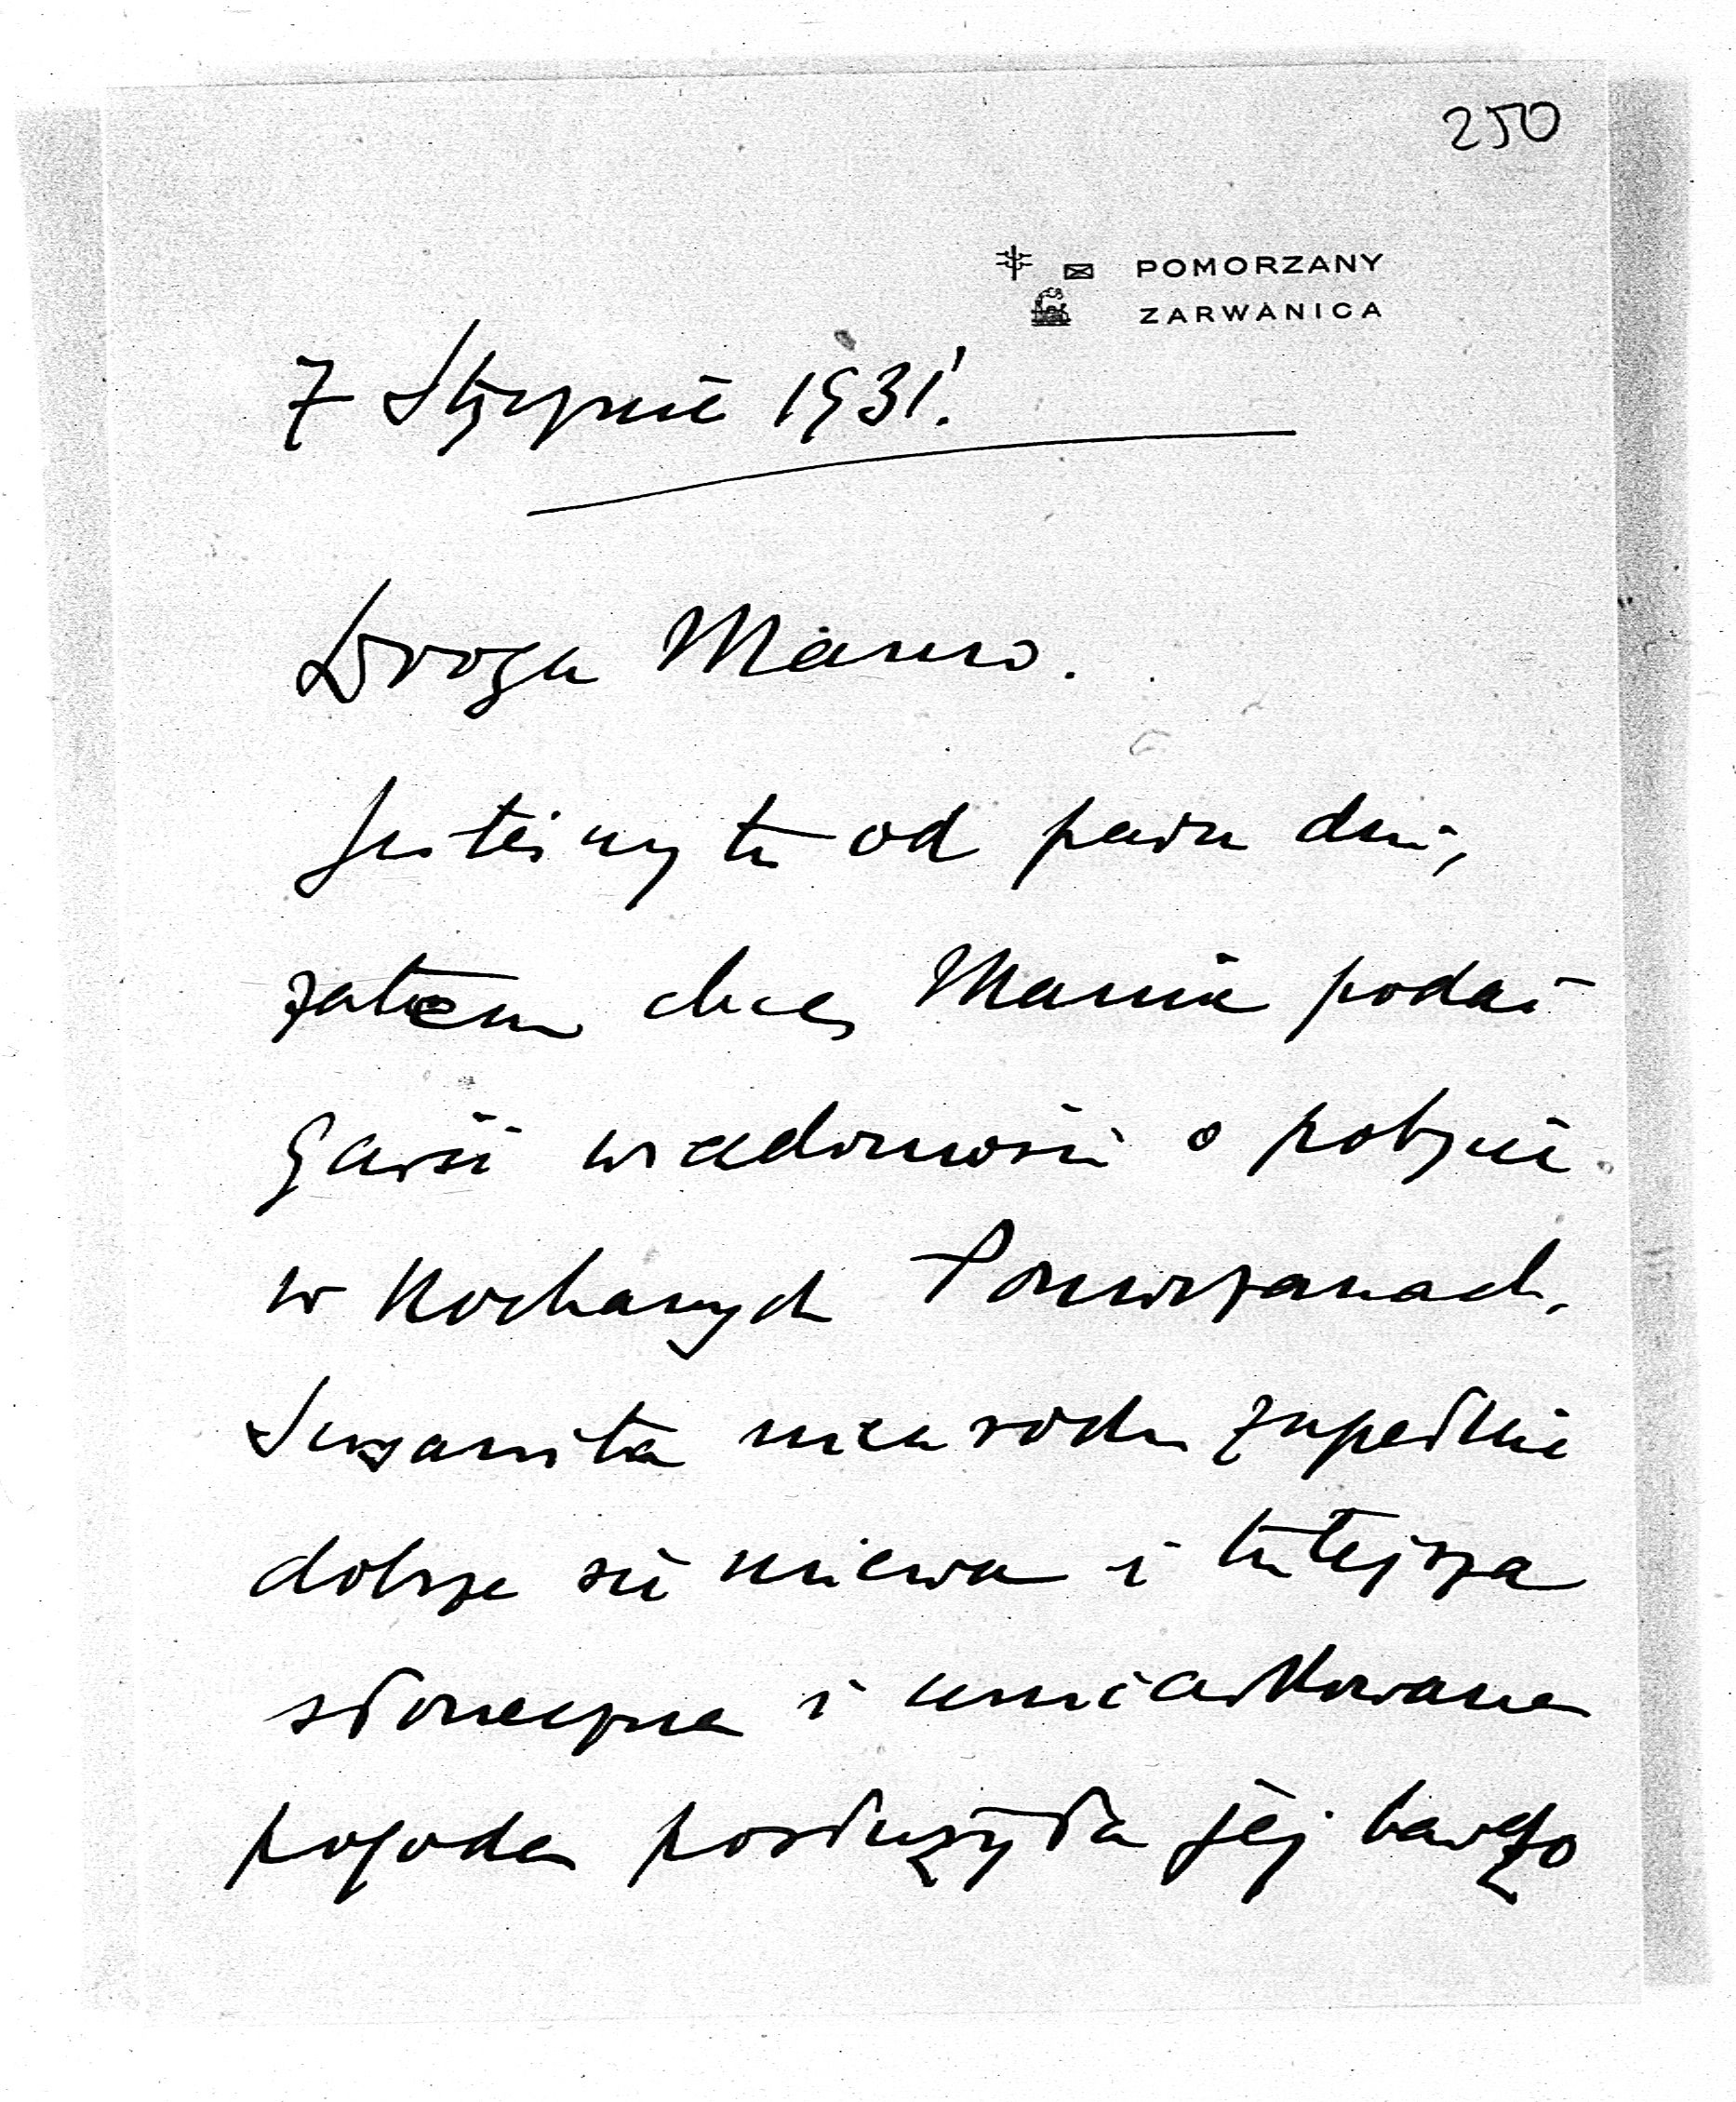 250
POMORZANY
ZARWANICA
7 Stycznia 1931.
Droga Mamo.
Jesteśmy tu od paru dni,
zatem chcę Mamie podać
garść wiadomości o pobycie
w Kochanych Pomorzanach.
Suzanita zupełnie
dobrze się miewa i tutejsza
słoneczna i umiarkowana
pogoda posłużyła jej bardzo